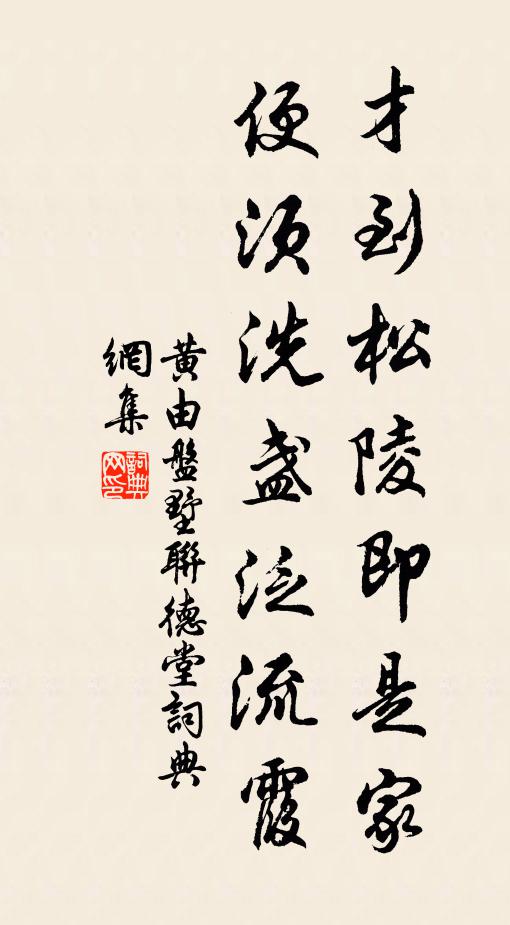 才到松陵即是家
便須洗盏泛流霞
黄由盤墅聯德堂詞典
網集
詞典
网印